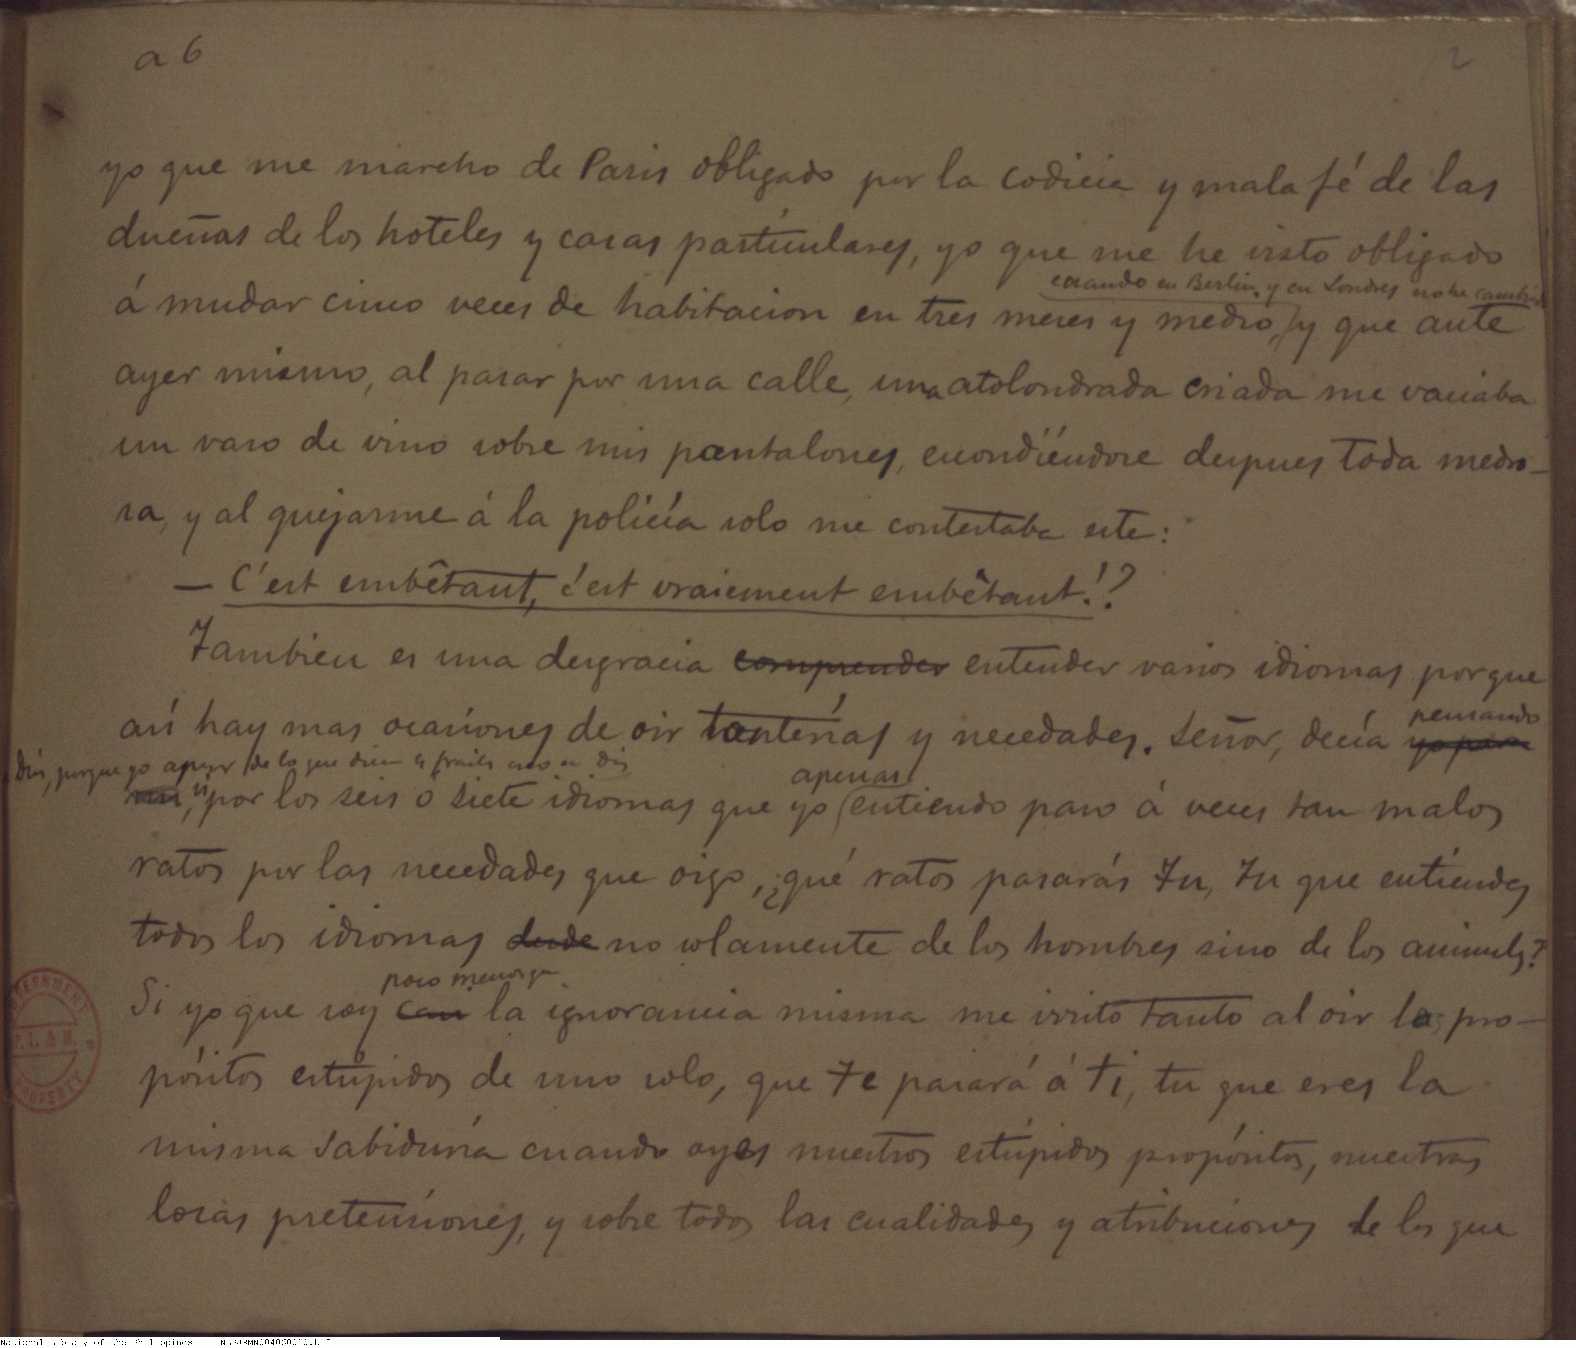 a 6
2
yo que me marcho de Paris obligado por la codicia y mala fé de las
dueñas de los hoteles y casas particulares, yo que me he visto obligado
cuando en Berlin y en Londres no he cambiado
á mudar cinco veces de habitacion en tres meses y medio, y que ante
ayer mismo, al pasar por una calle, una atolondrada criada me vaciaba
un vaso de vino sobre mis pantalones, escondiéndose despues toda medro-
sa, y al quejarme á la policía solo me contestaba este:
— C'est embêtant, c'est vraiement embêtant!?
Tambien es una desgracia comprender entender varios idiomas porque
asi hay mas ocasiones de oir tonterias y necedades. Señor, decía yo para
pensando
Dios, porque yo apesar de lo que dicen los frailes creo en Dios
mi, si por los seis o siete idiomas que yo entiendo paso á veces tan malos
apenas
ratos por las necedades que oigo, ¿qué ratos pasarás Tu, Tu que entiendes
todos los idiomas desde no solamente de los hombres sino de los animales?
poco menos que
Si yo que soy casi la ignorancia misma me irrito tanto al oir los pro-
pósitos estúpidos de uno solo, que te pasará á ti, tu que eres la
misma Sabiduria cuando oyes nuestros estúpidos propósitos, nuestras
locas pretensiones, y sobre todos las cualidades y atribuciones de los que
GOVERNMENT
P. L. & M.
PROPERTY
National Library of the Philippines